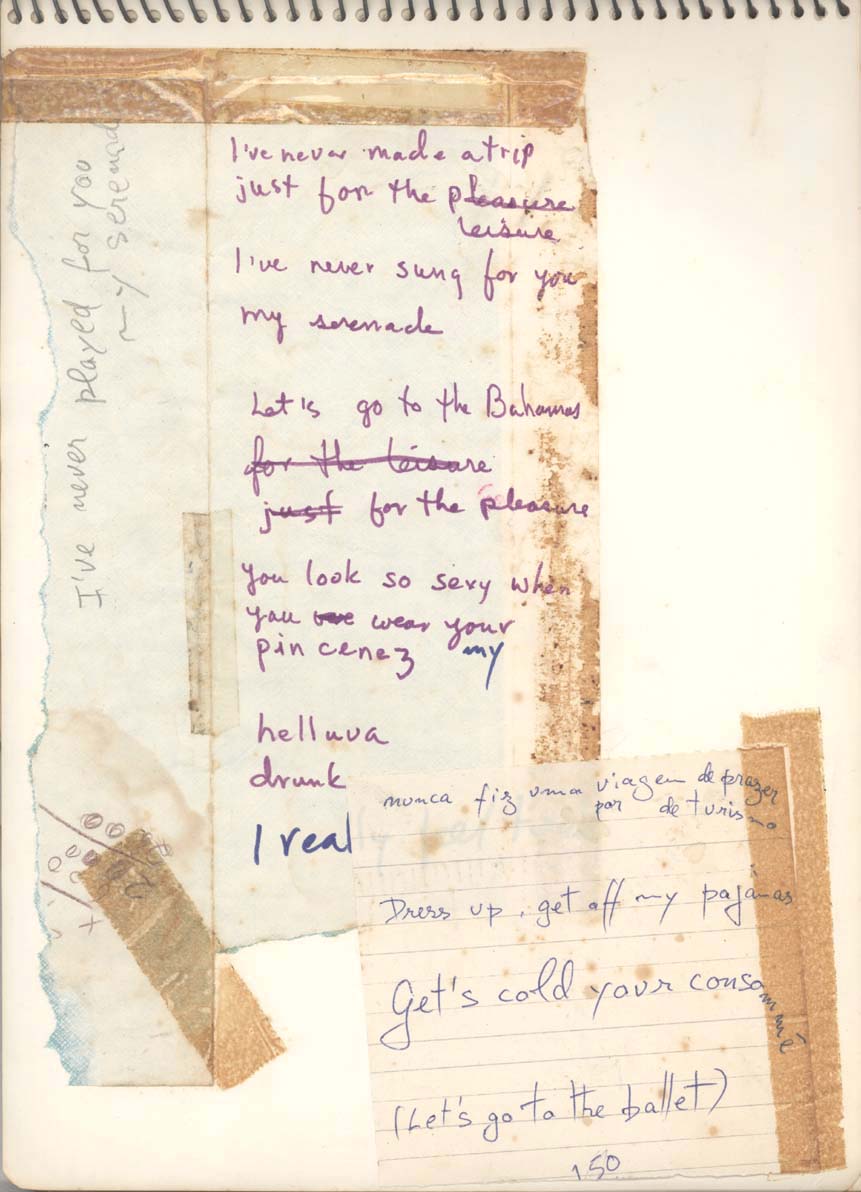 I've never played for you
my serenad
I've never made a trip
just for the pleasure
leisure
I've never sung for you
my serenade
Let's go to the Bahamas
for the leisure
just for the pleasure
you look so sexy when
you wear your
pin cenez my
helluva
drunk
I real
nunca fiz uma viagem de prazer
por de turismo
Dress up, get off my pajamas
Get's cold your consommé
(Let's go to the ballet)
150